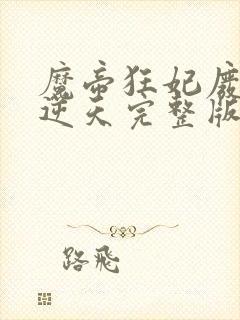 魔帝狂妃废
逆天完整版
路飛